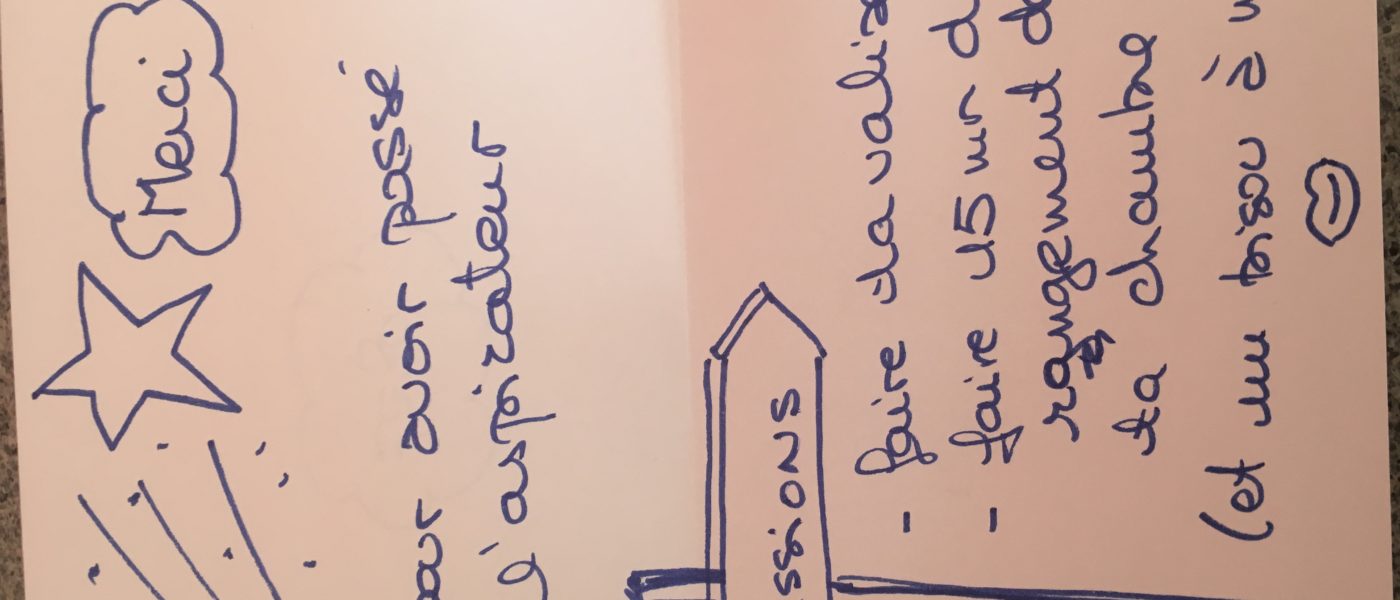 Merci
our avoir passé
l'aspirateur
SSIONS
- faire ta valis
- faire 15 mn d
rangement d
ta chambre
(et un bisou à